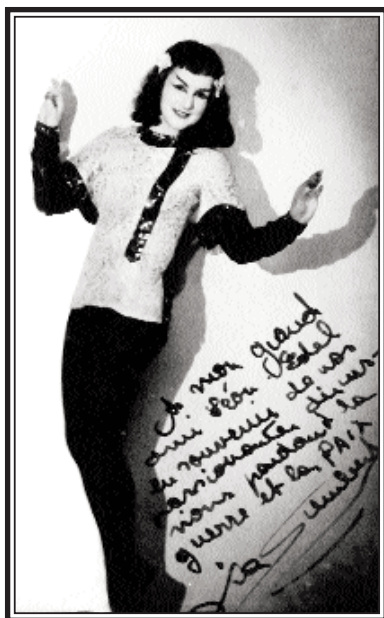 A mon grand
ami Léon Edel
en souvenir de nos
passionantes discus-
sions pendant la
guerre et la PAIX